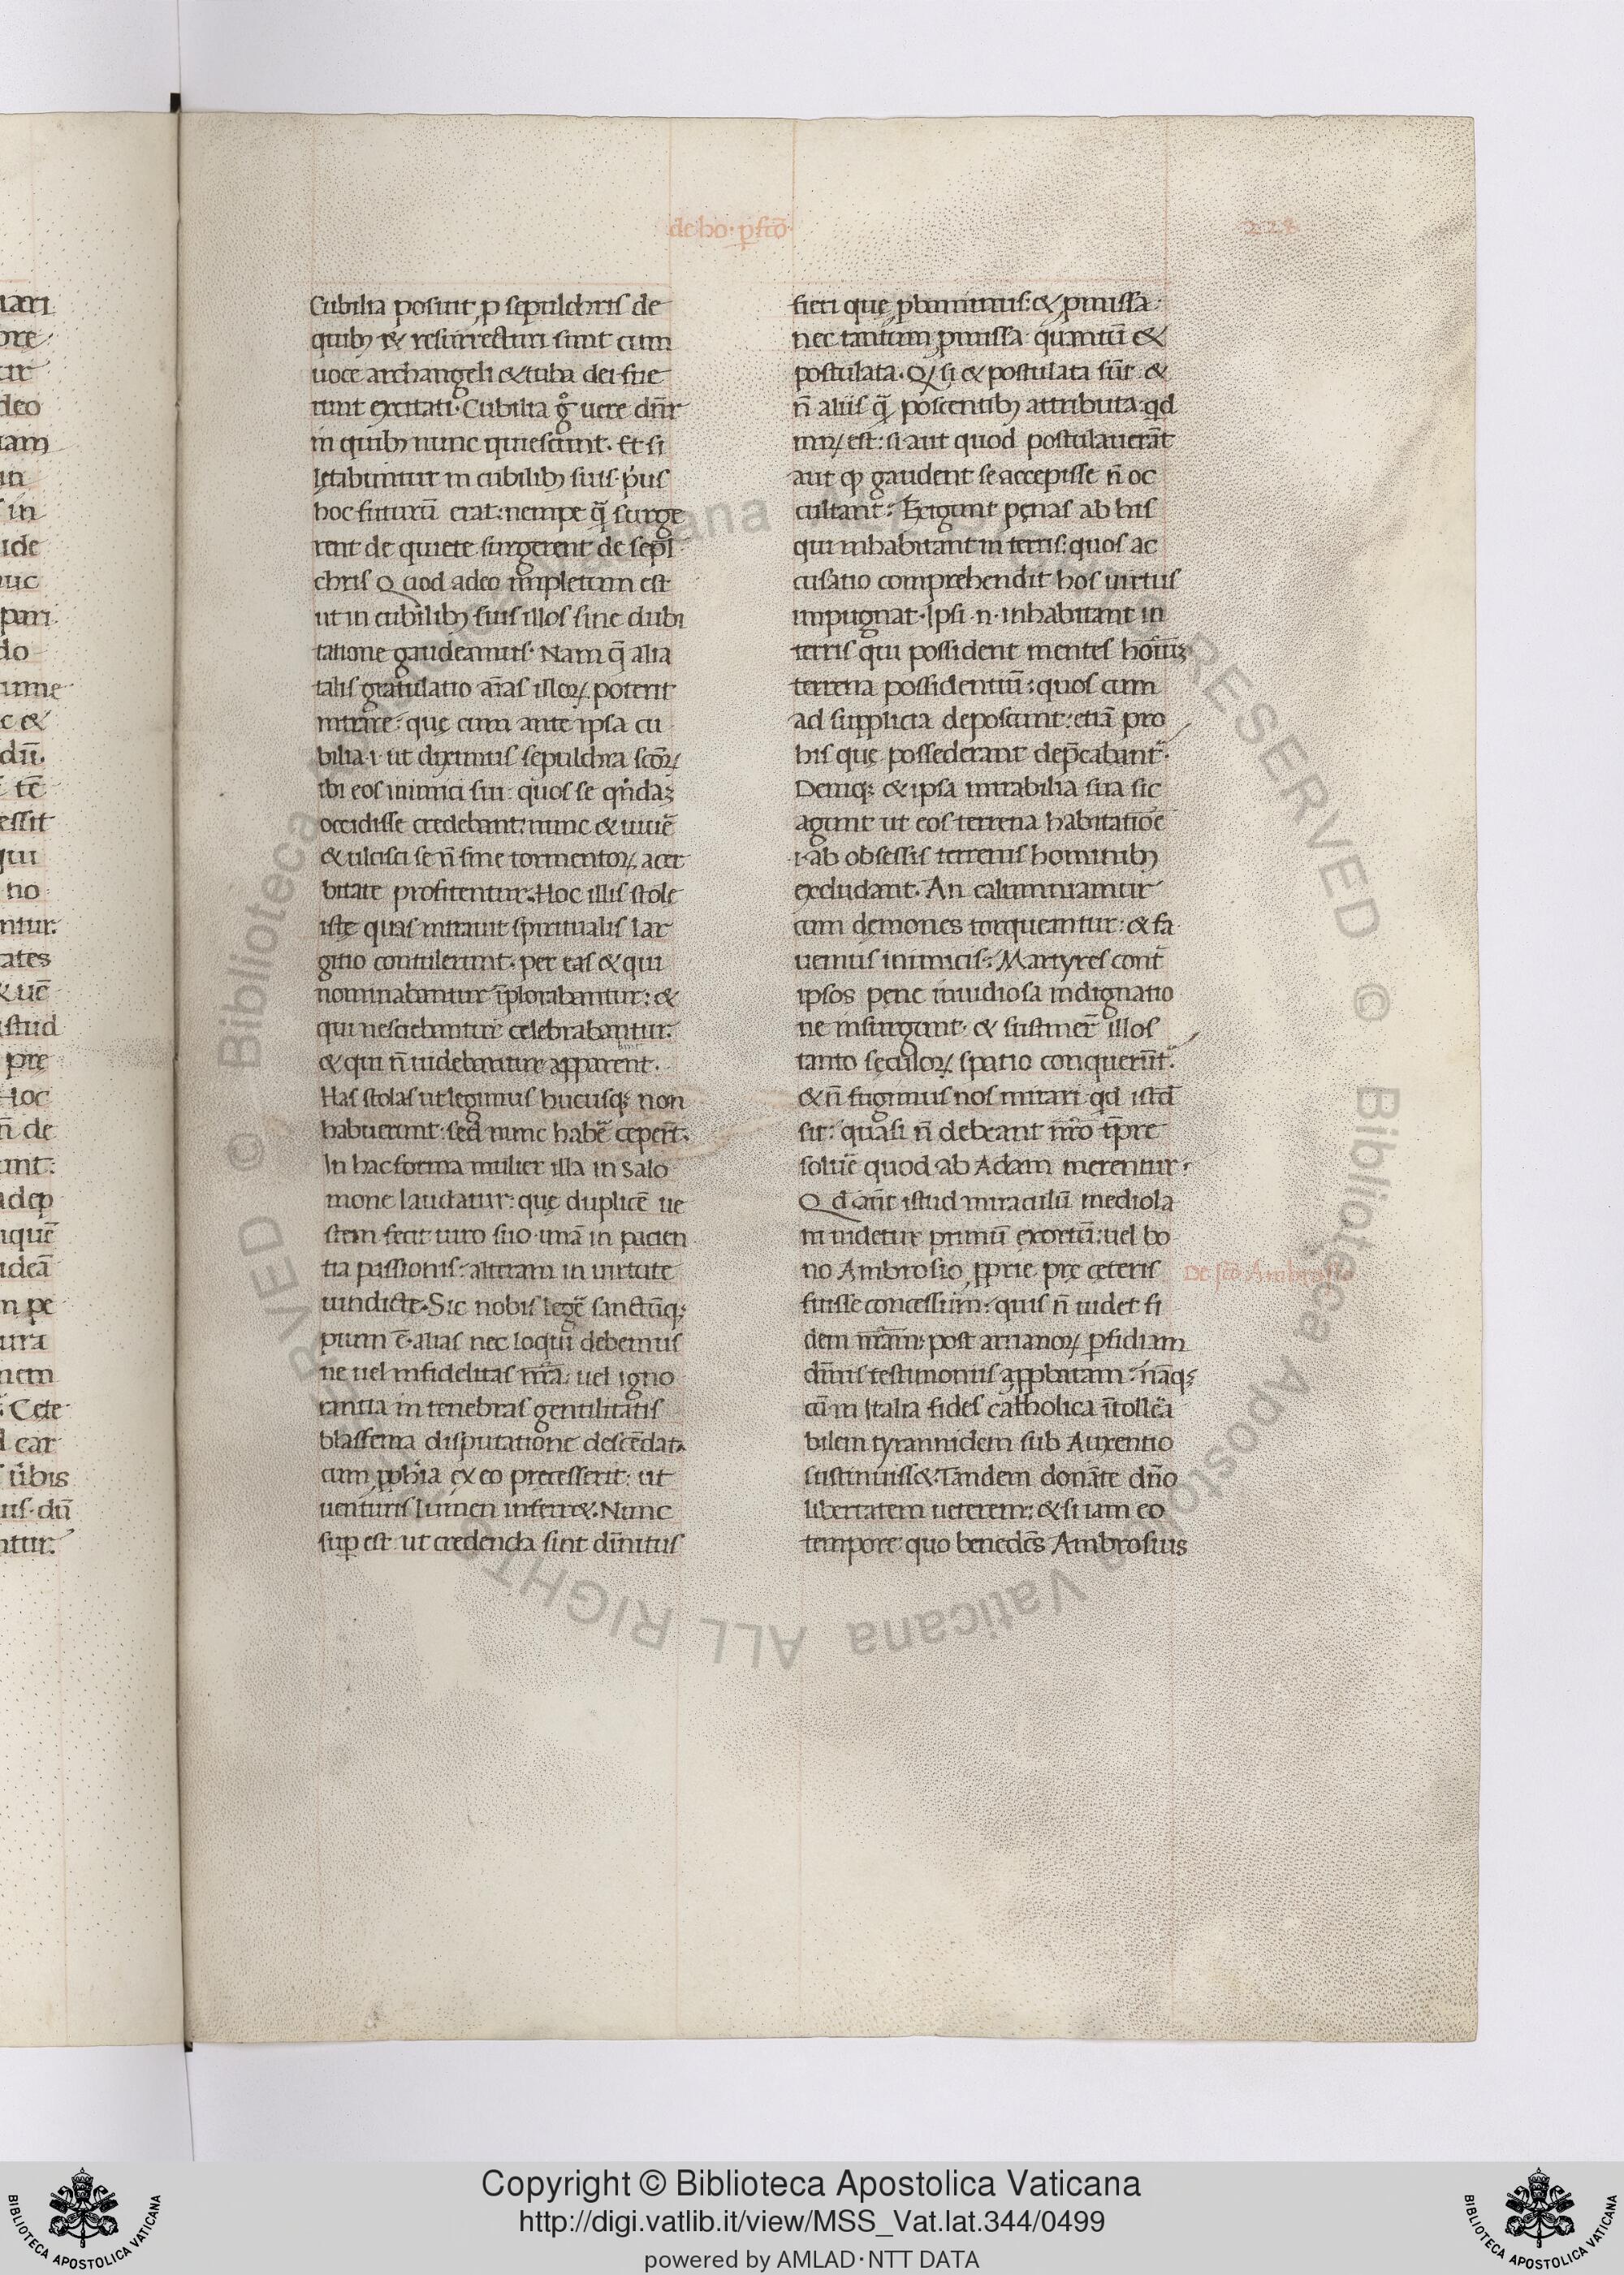 de ho· ꝑfcō·
228
Cubilia posuit p̱ sepulchris de
quibꝫ & resurrecturi sunt cum
uoce archangeli & tuba dei fue
runt excitati· Cubilia g̊ uere dn̄r
in quibꝫ nunc quiescunt. Et si
lętabuntur in cubilibꝫ suis· p̓us
hoc futurū erat: nempe q̄ surge
rent de quiete surgerent de sepl̄
chris Quod adeo impletum est
ut in cubilibꝫ suis illos sine dubi
tatione gaudeamus· Nam q̄ alia
talis gratulatio aīas illoꝝ potent
intrare· quę cum ante ipsa cu
bilia ·i· ut diximus sepulchra scōꝝ
ibi eos inimici sui: quos se qn̄daꝫ
occidisse credebant: nunc & uiuē
& ulcisci se n̄ sine tormentoꝝ acer
bitate profitentur. Hoc illis stole
istę quas mirauit spiritualis lar
gitio contulerunt· per eas & qui
nominabantur īplorabantur: &
qui nesciebantur celebrabantur:
& qui n̄ uidebantur apparent·
Has stolas ut legimus hucusqꝫ non
habuerunt: sed nunc habē̄ ceper̄t.
In hac forma mulier illa in Salo
mone laudatur: quę duplicē ue
stem fecit uiro suo· unā in pacien
tia passionis: alteram in uirtute
uindicte· Sic nobis legē̄ sanctūqꝫ
pium ē· alias nec loqui debemus
ne uel infidelitas nr̄a: uel igno
rantia in tenebras gentilitatis
blasfema disputatione descēdat.
cum ꝓphīa ex eo precesserit: ut
uenturis lumen inferr&. Nunc
suꝑ est ut credenda sint diuīnitus
fieri quę ꝓbamimus: & ꝓmissa·
nec tantum ꝓmissa quantū &
postulata· Qđ si & postulata sūt &
n̄ aliis q̄ poscentibꝫ attributa· qd
miꝝ est: si aut quod postulauerāt
aut ꝙ gaudent se accepisse n̄ oc
cultant: Exigunt penas ab his
qui inhabitant in terris: quos ac
cusatio comprehendit hos uirtus
impugnat· Ipsi ·n· inhabitant in
terris qui possident mentes hoīuꝫ
terrena possidentiū: quos cum
ad supplicia deposcunt: etiā pro
his quę possederant dep̄cabant̄·
Demqꝫ & ipsa mirabilia sua sic
agunt ut eos terrena habitatioē
·i· ab obsessis terrenis hominibꝫ
excludant· An calumniamur
cum demones torqueantur: & fa
uemus inimicis: Martyres cont̄
ipsos pene inuidiosa indignatio
ne insurgunt· & sustiner̄ illos
tanto sęculoꝝ spatio conquerūt̄·
& n̄ fugimus nos mirari qd istđ
sit: quasi n̄ debeant nr̄o tp̄re
soluē̄ quod ab Adam merentur:
Qd aūt istud miraculū mediola
ni uidetur primū exortū: uel bo
no Ambrosio ꝓprie prę ceteris
De scō Ambrosio
fuisse concessum: quis n̄ uidet fi
dem nr̄am: post arrianoꝝ ꝑfidiam
diuīnis testimoniis apꝓbatam: nāqꝫ
cū in Italia fides catholica ītollēa
bilem tyrannidem sub Auxentio
sustinuiss&: Tandem donāte dn̄o
libertatem ueterem: & si iam eo
tempore quo benedc̄s Ambrosius
Copyright © Biblioteca Apostolica Vaticana
http://digi.vatlib.it/view/MSS_Vat.lat.344/0499
powered by AMLAD·NTT DATA
BIBLIOTECA APOSTOLICA VATICANA
BIBLIOTECA APOSTOLICA VATICANA